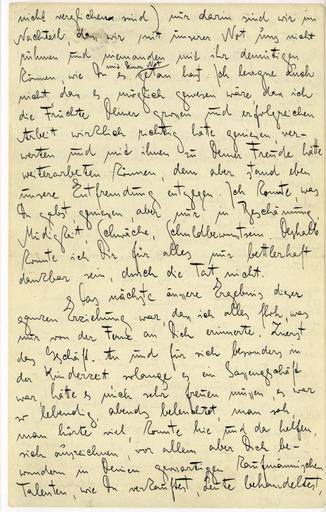 nicht verglichen sind) nur darin sind wir im
Nachteil, dass wir mit unserer Not uns nicht
rühmen und niemanden mit ihr demütigen
können wie Du es mit Deiner Not getan hast. Ich leugne auch
nicht dass es möglich gewesen wäre dass ich
die Früchte Deiner grossen und erfolgreichen
Arbeit wirklich richtig hätte geniessen, ver-
werten und mit ihnen zu Deiner Freude hätte
weiterarbeiten können, dem aber stand eben
unsere Entfremdung entgegen. Ich konnte was
Du gabst geniessen aber nur in Beschämung,
Müdigkeit, Schwäche, Schuldbewusstsein. Deshalb
konnte ich Dir für alles nur bettlerhaft
dankbar sein, durch die Tat nicht.
Das nächste äussere Ergebnis dieser
ganzen Erziehung war, dass ich alles floh, was
nur von der Ferne an Dich erinnerte. Zuerst
das Geschäft. An und für sich besonders in
der Kinderzeit solange es ein Gassengeschäft
war, hätte es mich sehr freuen müssen es war
so lebendig, abends beleuchtet, man sah,
man hörte viel, konnte hie und da helfen,
sich auszeichnen, vor allem aber Dich be-
wundern in Deinen grossartigen kaufmännischen
Talenten, wie Du verkauftest, Leute behandeltest,